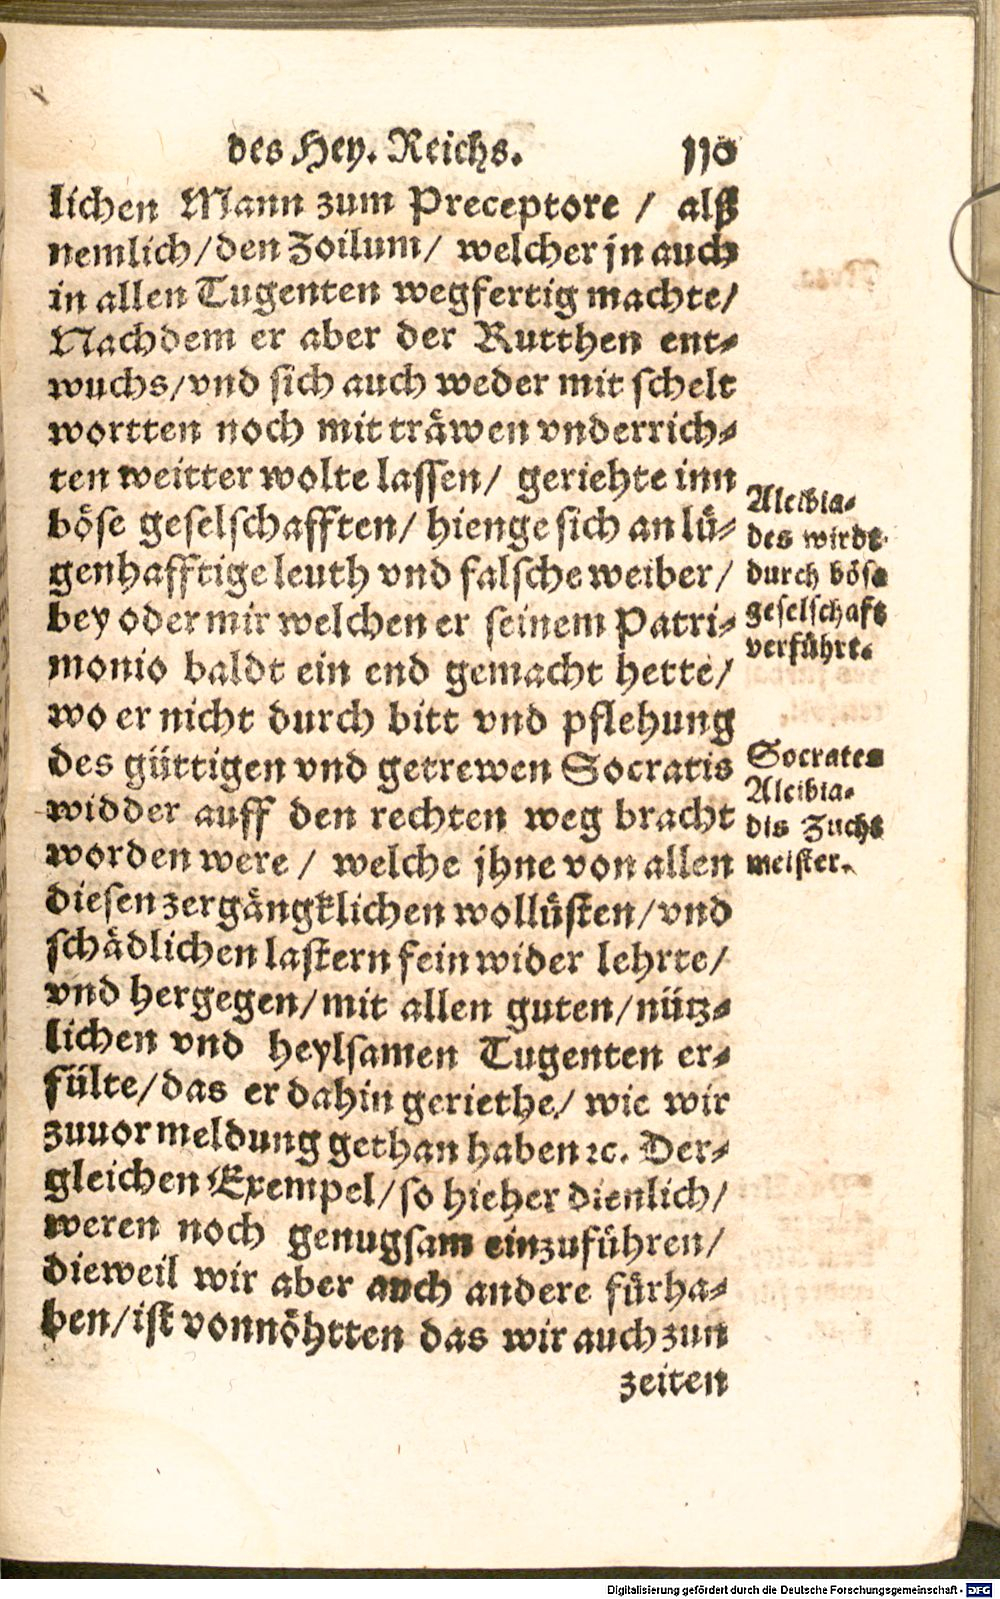 des Hey. Reichs. 110
lichen Mann zum Preceptore / alß
nemlich/den Zoilum/ welcher jn auch
in allen Tugenten wegfertig machte/
Nachdem er aber der Rutthen ent-
wuchs/vnd sich auch weder mit schelt
wortten noch mit träwen vnderrich-
ten weitter wolte lassen/ geriehte inn
böse geselschafften/ hienge sich an lü-
genhafftige leuth vnd falsche weiber/
bey oder mir welchen er seinem Patri-
monio baldt ein end gemacht hette/
wo er nicht durch bitt vnd pflehung
des güttigen vnd getrewen Socratis
widder auff den rechten weg bracht
worden were / welche jhne von allen
diesen zergängklichen wollüsten/vnd
schädlichen lastern fein wider lehrte/
vnd hergegen/mit allen guten/nütz-
lichen vnd heylsamen Tugenten er-
fülte/das er dahin geriethe/ wie wir
zuuor meldung gethan haben ꝛc. Der-
gleichen Exempel/so hieher dienlich/
weren noch genugsam einzuführen/
dieweil wir aber auch andere fürha-
ben/ist vonnöhtten das wir auch zun
zeiten
Alcibia-
des wirdt
durch böse
geselschaft
verführt.
Socrates
Alcibia-
dis Zucht
meister.
Digitalisierung gefördert durch die Deutsche Forschungsgemeinschaft - DFG